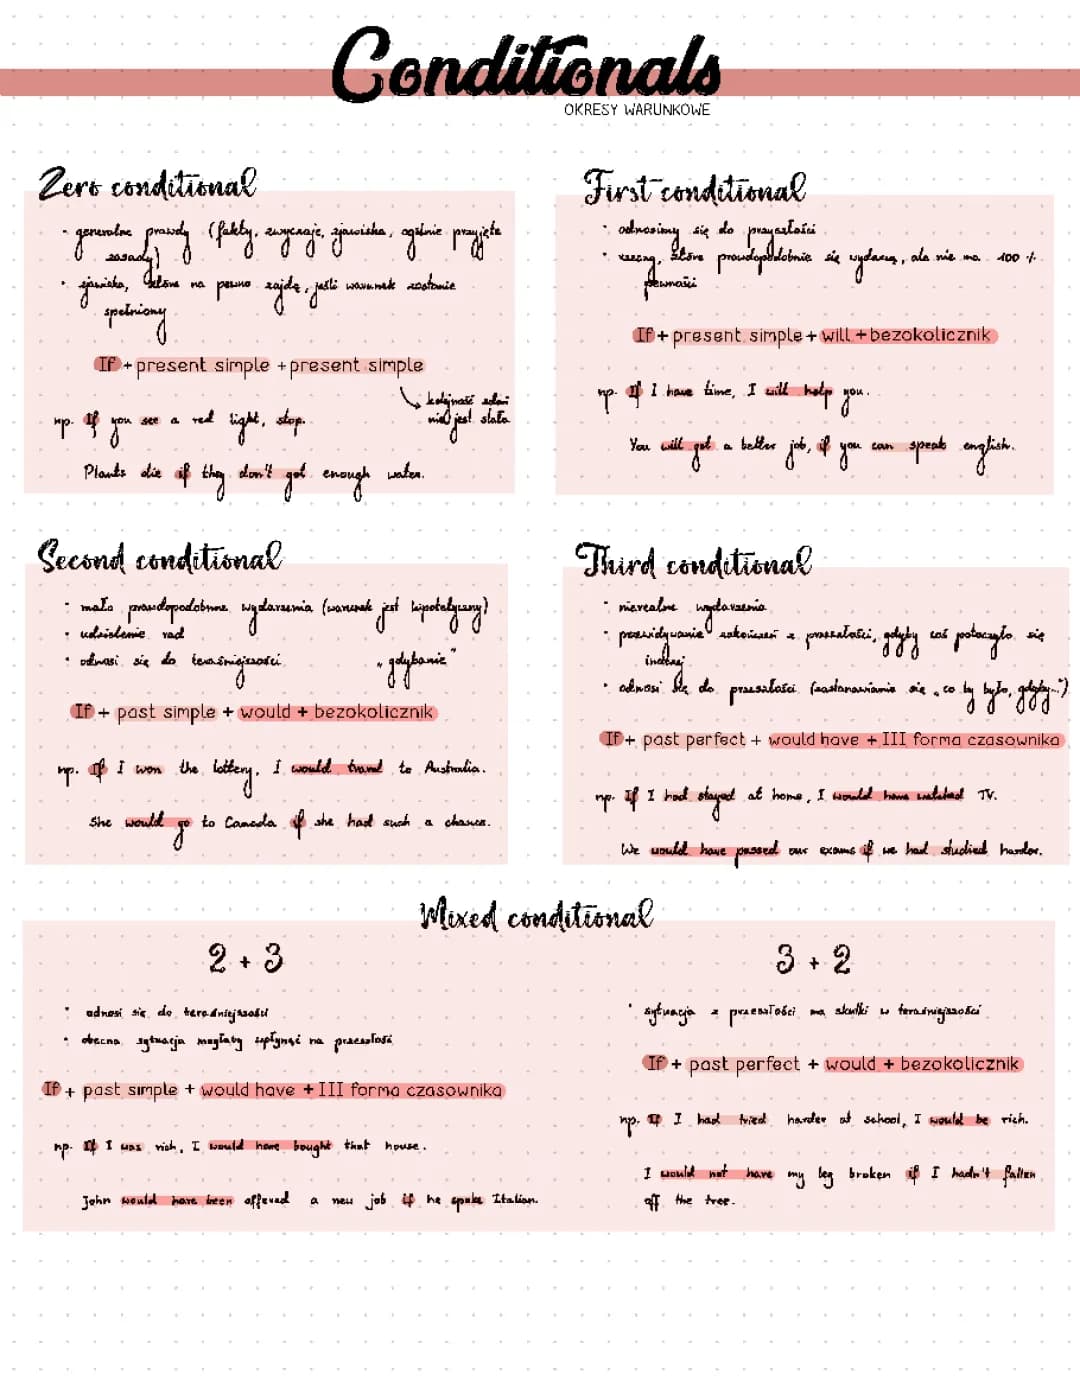 Conditionals
OKRESY WARUNKOWE
Zero conditional
• generalne prawdy (fakty, zwyczaje, zjawiska, ogólnie przyjęte
zasady)
• zjawiska, które na pewno zajdą, jeśli warunek zostanie
spełniony
If + present simple + present simple
kolejność zdań
nie jest stała
np. If you see a red light, stop.
Plants die if they don't get enough water.
First conditional
• odnosimy się do przyszłości
• rzeczy, które prawdopodobnie się wydarzą, ale nie ma 100 %
pewności
If + present simple + will + bezokolicznik
np. If I have time, I will help you.
You will get a better job, if you can speak english.
Second conditional
• mało prawdopodobne wydarzenia (warunek jest hipotetyczny)
• udzielenie rad
• odnosi się do teraźniejszości
"gdybanie"
If + past simple + would + bezokolicznik
np. If I won the lottery, I would travel to Australia.
She would go to Canada if she had such a chance.
Third conditional
• nierealne wydarzenia
• przewidywanie zakończeń z przeszłości, gdyby coś potoczyło się
inaczej
• odnosi się do przeszłości (zastanawianie się „co by było, gdyby...")
If + past perfect + would have + III forma czasownika
np. If I had stayed at home, I would have watched TV.
We would have passed our exams if we had studied harder.
Mixed conditional
2 + 3
• odnosi się do teraźniejszości
• obecna sytuacja mogłaby wpłynąć na przeszłość
If + past simple + would have + III forma czasownika
np. If I was rich, I would have bought that house.
John would have been offered a new job if he spoke Italian.
3 + 2
• sytuacja z przeszłości ma skutki w teraźniejszości
If + past perfect + would + bezokolicznik
np. If I had tried harder at school, I would be rich.
I would not have my leg broken if I hadn't fallen
off the tree.